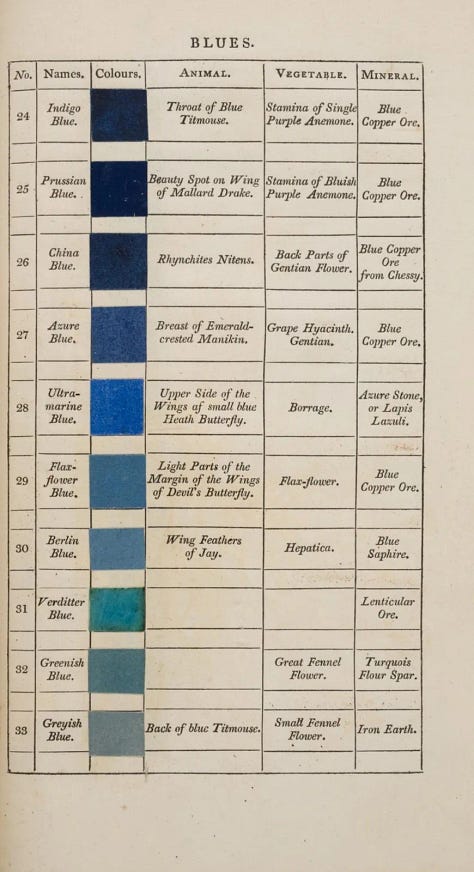 BLUES.
No. Names. Colours. ANIMAL. VEGETABLE. MINERAL.
24 Indigo Blue. Throat of Blue Titmouse. Stamina of Single Purple Anemone. Blue Copper Ore.
25 Prussian Blue. Beauty Spot on Wing of Mallard Drake. Stamina of Bluish Purple Anemone. Blue Copper Ore.
26 China Blue. Rhynchites Nitens. Back Parts of Gentian Flower. Blue Copper Ore from Chessy.
27 Azure Blue. Breast of Emerald-crested Manikin. Grape Hyacinth. Gentian. Blue Copper Ore.
28 Ultra-marine Blue. Upper Side of the Wings of small blue Heath Butterfly. Borrage. Azure Stone, or Lapis Lazuli.
29 Flax-flower Blue. Light Parts of the Margin of the Wings of Devil's Butterfly. Flax-flower. Blue Copper Ore.
30 Berlin Blue. Wing Feathers of Jay. Hepatica. Blue Saphire.
31 Verditter Blue. Lenticular Ore.
32 Greenish Blue. Great Fennel Flower. Turquois Flour Spar.
33 Greyish Blue. Back of blue Titmouse. Small Fennel Flower. Iron Earth.